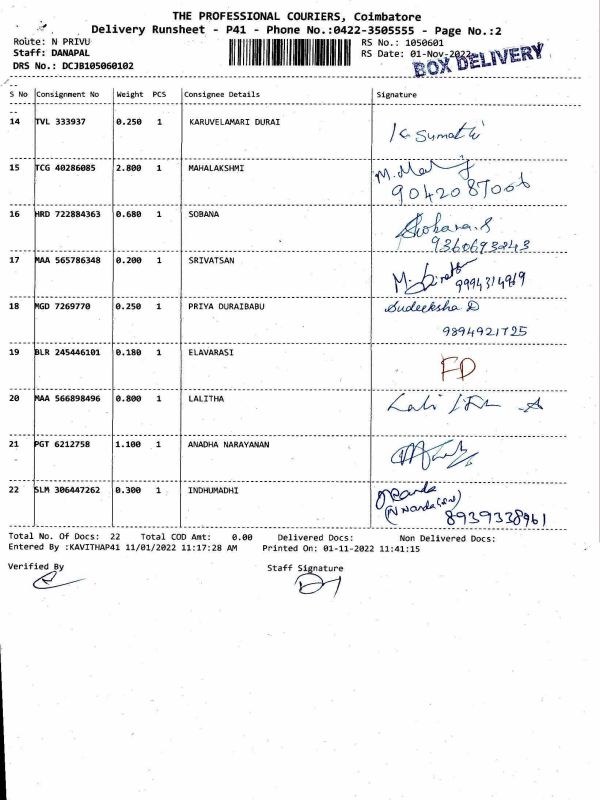 THE PROFESSIONAL COURIERS, Coimbatore
Delivery Runsheet - P41 - Phone No.:0422-3505555 - Page No.:2
Route: N PRIVU RS No.: 1050601
Staff: DANAPAL RS Date: 01-Nov-2022
DRS No.: DCJB105060102 BOX DELIVERY
S No Consignment No Weight PCS Consignee Details Signature
14 TVL 333937 0.250 1 KARUVELAMARI DURAI K Sumathi
15 TCG 40286085 2.800 1 MAHALAKSHMI
9042087006
16 HRD 722884363 0.680 1 SOBANA Shobana.S
9360693843
17 MAA 565786348 0.200 1 SRIVATSAN
9994314969
18 MGD 7269770 0.250 1 PRIYA DURAIBABU Sudeeksha D
9894921725
19 BLR 245446101 0.180 1 ELAVARASI FD
20 MAA 566898496 0.800 1 LALITHA
21 PGT 6212758 1.100 1 ANADHA NARAYANAN
22 SLM 306447262 0.300 1 INDHUMADHI Nanda
8939338961
Total No. Of Docs: 22 Total COD Amt: 0.00 Delivered Docs: Non Delivered Docs:
Entered By :KAVITHAP41 11/01/2022 11:17:28 AM Printed On: 01-11-2022 11:41:15
Verified By Staff Signature